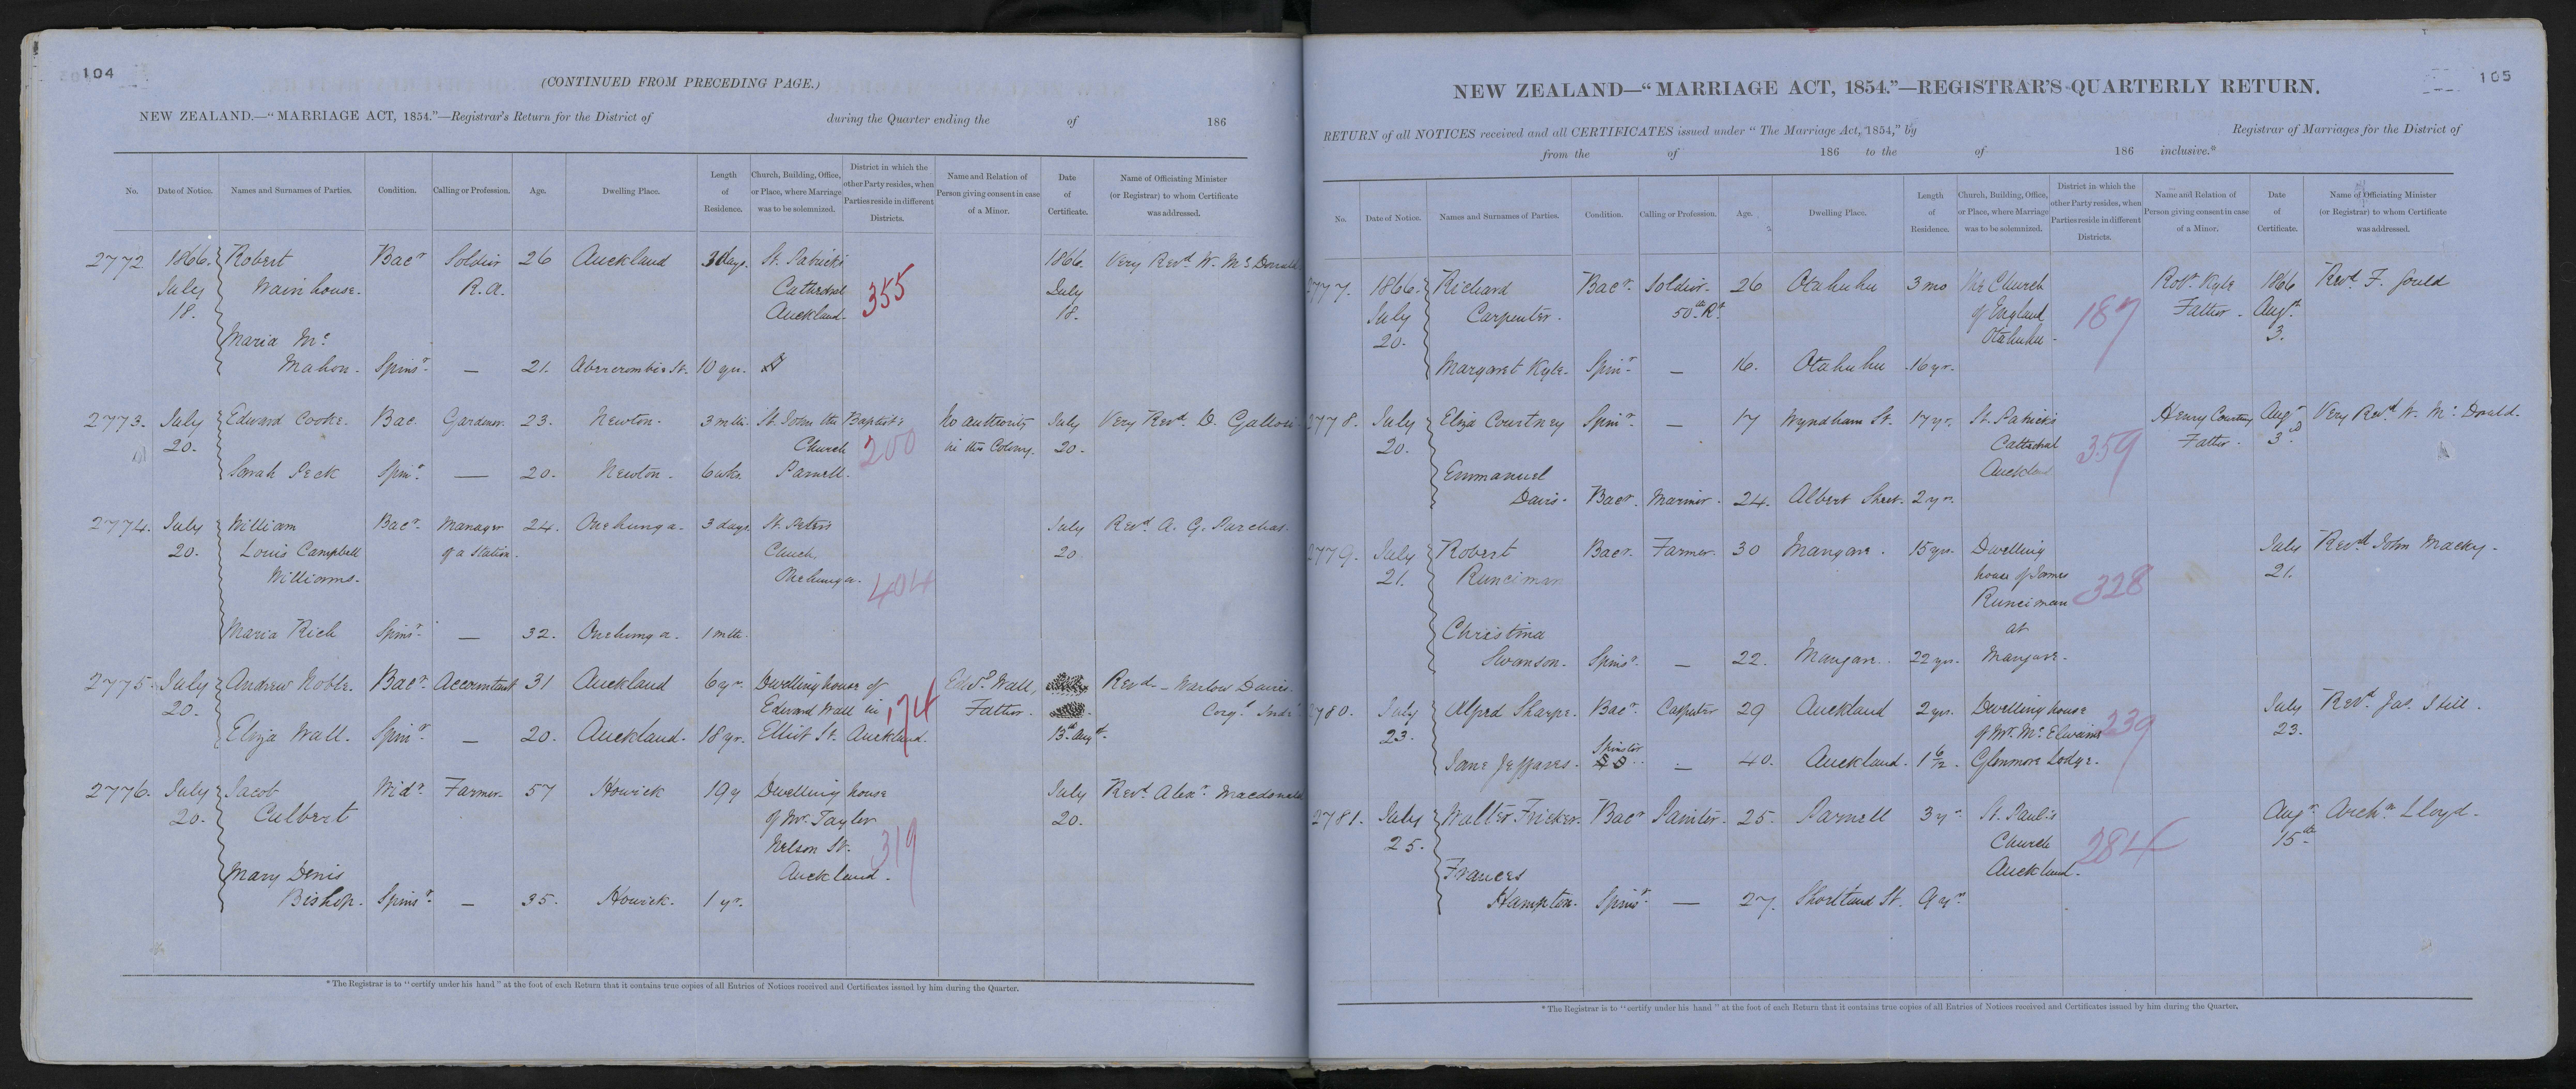 104
(CONTINUED FROM PRECEDING PAGE.)
NEW ZEALAND.—"MARRIAGE ACT, 1854."—Registrar's Return for the District of during the Quarter ending the of 186
No. Date of Notice. Names and Surnames of Parties. Condition. Calling or Profession. Age. Dwelling Place. Length of Residence. Church, Building, Office, or Place, where Marriage was to be solemnized. District in which the other Party resides, when Parties reside in different Districts. Name and Relation of Person giving consent in case of a Minor. Date of Certificate. Name of Officiating Minister (or Registrar) to whom Certificate was addressed.
2772 1866. Robert Bacr Soldier 26 Auckland 3 days. St. Patrick's 1866. Very Revd. W. Mc Donald
July Wainhouse. R.A. Cathedral 355 July
18. Auckland. 18.
Maria Mc
Mahon. Spinr. — 21. Abercrombie St. 10 yrs.
2773. July Edward Cooke. Bac. Gardener. 23. Newton. 3 mths. St. John the Baptist's No authority July Very Revd. D.
20. Church 200 in the Colony. 20.
Sarah Peck Spinr. — 20. Newton. 6 wks. Parnell.
2774. July William Bacr. Manager 24. Onehunga. 3 days. St. Peters July Revd. A. G. Purchas.
20. Louis Campbell of a Station. Church 20
Williams. Onehunga. 404
Maria Rich Spinr. — 32. Onehunga. 1 mth.
2775. July Andrew Noble. Bacr. Accountant 31 Auckland 6 yrs. Dwelling house of Edwd. Wall, Revd. — Warlow Davies.
20. Edward Wall in 174 Father. Congl. Indt.
Eliza Wall. Spinr. — 20. Auckland. 18 yr. Elliot St. Auckland. 13th Augt.
2776. July Jacob Widr. Farmer. 57 Howick 19 y Dwelling house July Revd. Alexr. Macdonald
20. Culbert of Mr. Taylor 20.
Nelson St. 319
Mary Denis Auckland.
Bishop. Spinr. — 35. Howick. 1 yr.
* The Registrar is to "certify under his hand" at the foot of each Return that it contains true copies of all Entries of Notices received and Certificates issued by him during the Quarter.
105
NEW ZEALAND—"MARRIAGE ACT, 1854."—REGISTRAR'S QUARTERLY RETURN.
RETURN of all NOTICES received and all CERTIFICATES issued under "The Marriage Act, 1854," by Registrar of Marriages for the District of
from the of 186 to the of 186 inclusive.*
No. Date of Notice. Names and Surnames of Parties. Condition. Calling or Profession. Age. Dwelling Place. Length of Residence. Church, Building, Office, or Place, where Marriage was to be solemnized. District in which the other Party resides, when Parties reside in different Districts. Name and Relation of Person giving consent in case of a Minor. Date of Certificate. Name of Officiating Minister (or Registrar) to whom Certificate was addressed.
2777. 1866. Richard Bacr. Soldier. 26 Otahuhu 3 mo The Church Robt. Kyle 1866 Revd. F. Gould
July Carpenter. 50th Rt. of England 187 Father. Augt.
20. Otahuhu. 3.
Margaret Kyle. Spinr. — 16. Otahuhu 16 yr.
2778. July Eliza Courtney Spinr. — 17 Wyndham St. 17 yr. St. Patrick's Henry Courtney Augt. Very Revd. W. Mc. Donald.
20. Cathedral 359 Father. 3rd
Emmanuel Auckland
Davis. Bacr. Mariner. 24. Albert Street. 2 yrs.
2779. July Robert Bacr. Farmer. 30 Mangare. 15 yrs. Dwelling July Revd. John Macky.
21. Runciman house of James 328 21.
Runciman
Christina at
Swanson. Spinr. — 22. Mangare. 22 yrs. Mangare.
2780. July Alfred Sharpe. Bacr. Carpenter 29 Auckland 2 yrs. Dwelling house July Revd. Jas. Still.
23. of Mr. Mc. Elwains 239 23.
Jane Jeffares. Spinster — 40. Auckland. 1 6/12. Glenmore Lodge.
2781. July Walter Fricker. Bacr Painter. 25. Parnell 3 yr. St. Paul's Augt. Archn. Lloyd.
25. Church 284 15th
Frances Auckland.
Hampton. Spinr. — 27. Shortland St. 9 yrs.
* The Registrar is to "certify under his hand" at the foot of each Return that it contains true copies of all Entries of Notices received and Certificates issued by him during the Quarter.